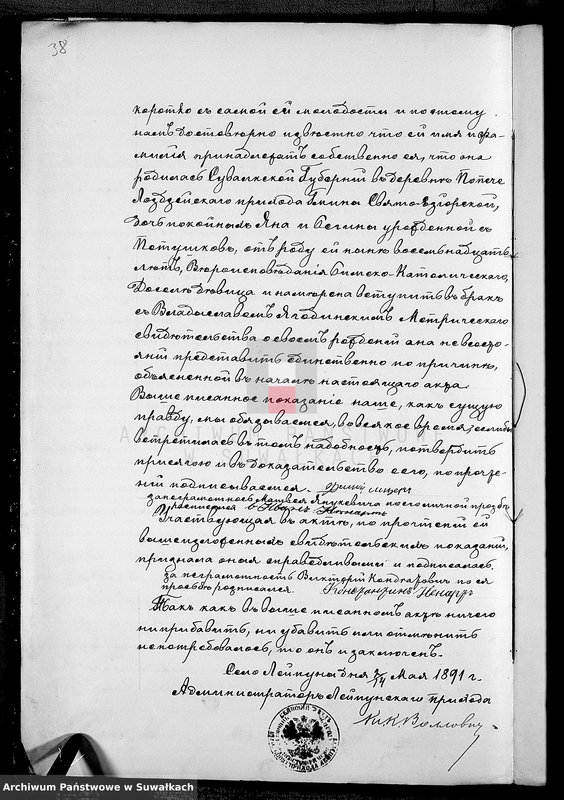 38
коротко съ самой ей молодости и поэтому
намъ достовѣрно извѣстно что ей имя и фа-
милія принадлежатъ собственно ея, что она
родилась Сувалкской Губерніи въ деревнѣ
Лоздзейскаго прихода Гмины Свято-Езіорской,
дочь покойныхъ Яна и урожденной съ
Петушковъ, отъ роду ей нынѣ восемьнадцать
лѣтъ, Вѣроисповѣданія Римско-Католическаго,
Доселѣ дѣвица и намѣрена вступить въ бракъ
съ Владиславомъ Ягодинскимъ Метрическаго
свидѣтельства о своемъ рожденіи она не въ состо-
яніи представить единственно по причинѣ,
объясненной въ началѣ настоящаго акта
Выше писанное показаніе наше, какъ сущую
правду, мы обязываемся, во всякое время, если бы
встрѣтилась въ томъ надобность, потвердить
присягою и въ доказательство сего, по прочте-
ніи подписываемся.
за неграмотнаго Матвея Янукевича по его личной прозьбѣ
Участвующая въ актѣ, по прочтеніи ей
вышеизложенныхъ свидѣтельскихъ показаній,
признала оныя справедливыми и подписалась.
за неграмотность Викторіи Кондратовичъ по ея
просьбѣ росписался. Константинъ
Такъ какъ въ выше писанномъ актѣ ничего
ни прибавить, ни убавить или отмѣнить
непотребовалось, то онъ и заключенъ.
Село Лейпуны дня 2/14 Мая 1891 г.
Администраторъ Лейпунскаго прихода
Кс. К. Волловичъ
ARCHIWUM PAŃSTWOWE
W SUWAŁKACH
Archiwum Państwowe w Suwałkach